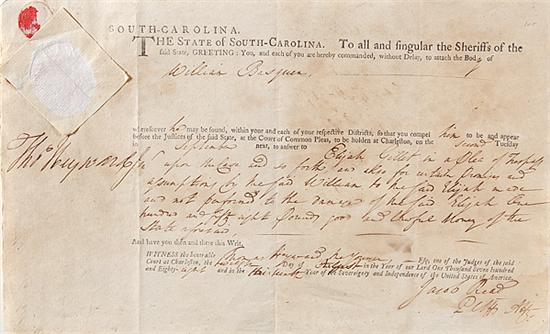 SOUTH-CAROLINA.
THE STATE OF SOUTH-CAROLINA. To all and singular the Sheriffs of the
said State, GREETING: You, and each of you are hereby commanded, without Delay, to attach the Body of
William
wheresoever he may be found, within your and each of your respective Districts, so that you compel him to be and appear
before the Justices of the said State, at the Court of Common Pleas, to be holden at Charleston, on the second Tuesday
in September next, to answer to Elijah Gillet in a Plea of Trespass
Thos Heyward Jr
upon the case and so forth and also for certain Promises and
assumptions by the said William to the said Elijah made
and not performed to the damage of the said Elijah One
hundred and fifty eight Pounds good and lawful Money of the
State aforesaid
And have you then and there this Writ.
WITNESS the honorable Thomas Heyward Junior Esq, one of the Judges of the said
Court at Charleston, the Day of August in the Year of our Lord One Thousand Seven Hundred
and Eighty-eight and in the thirteenth Year of the Sovereignty and Independence of the United States of America.
Jacob Read
Plffs Atty